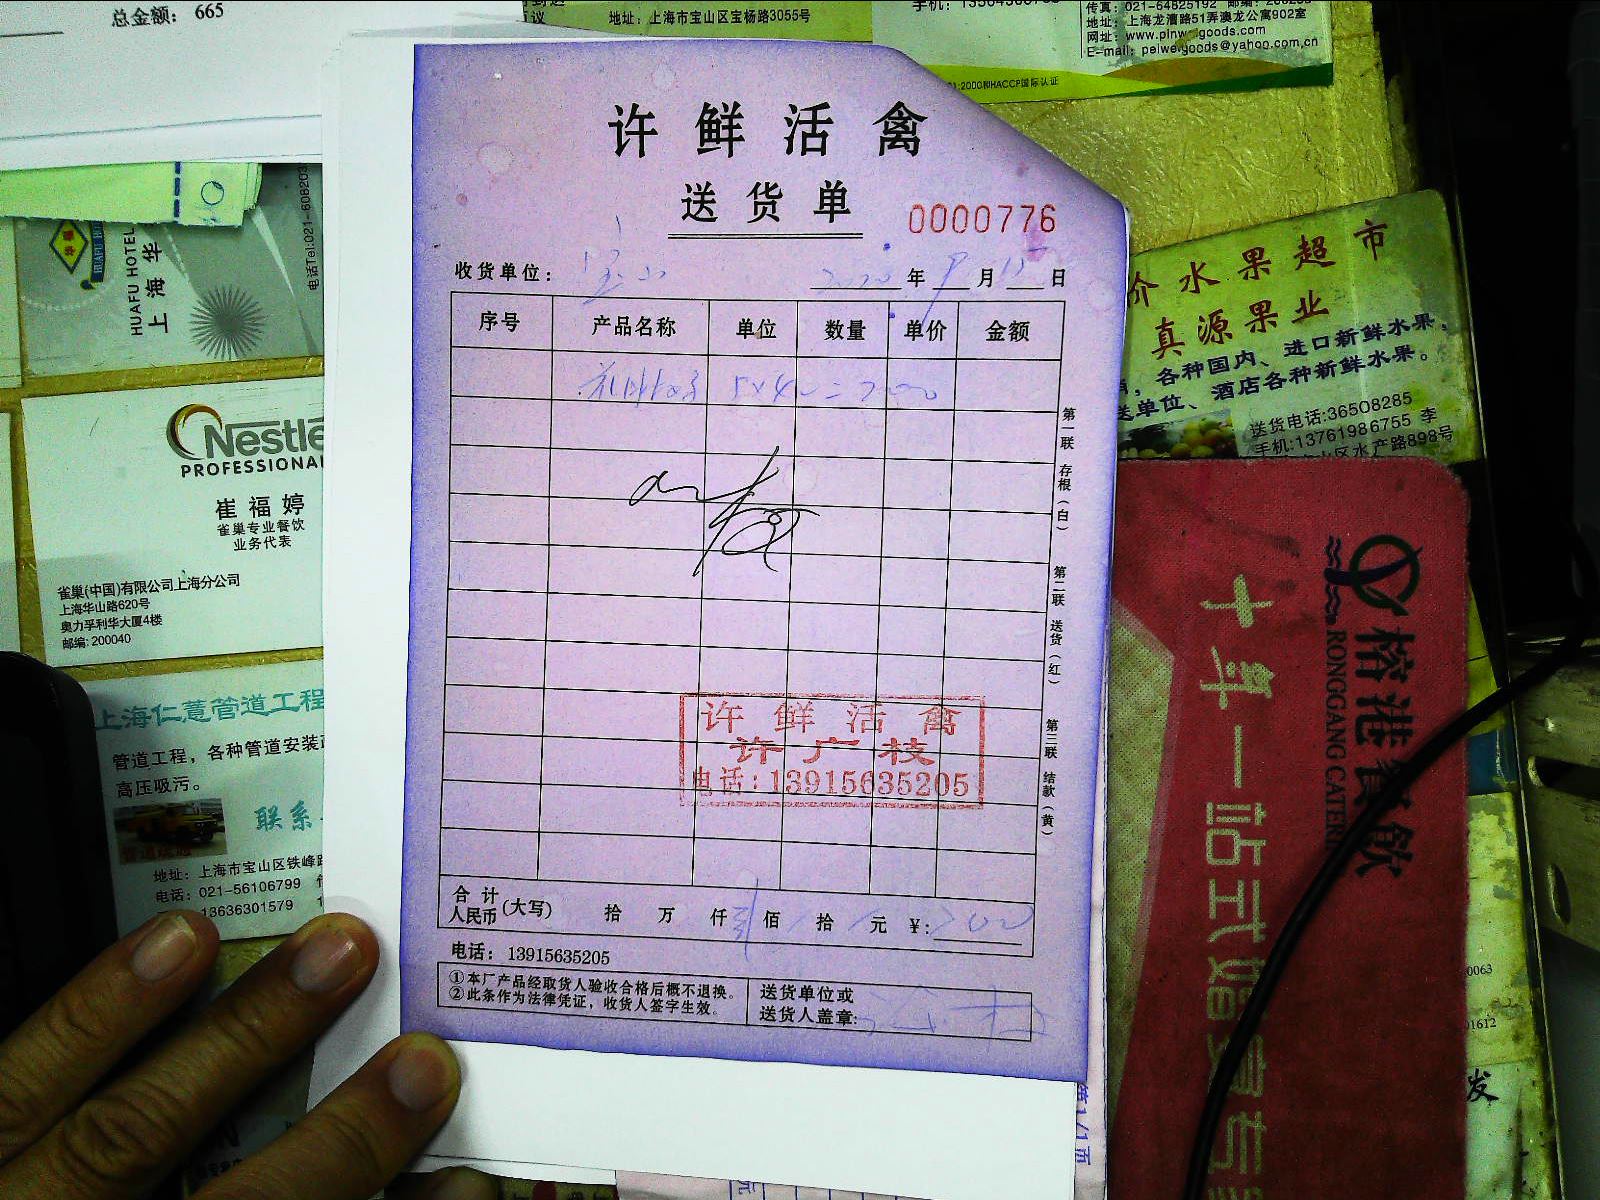 总金额: 665
地址: 上海市宝山区宝杨路3055号
传真: 021-64825192
地址: 上海龙漕路51弄澳龙公寓902室
E-mail: peiweigoods@yahoo.com.cn
2000和HACCP国际认证
许鲜活禽
送货单
0000776
收货单位: 宝山 年 月 日
序号 产品名称 单位 数量 单价 金额
第一联 存根(白)
第二联 送货(红)
第三联 结款(黄)
许鲜活禽
许广枝
电话:13915635205
合计人民币(大写) 拾 万 仟 佰 拾 元 ¥:
电话: 13915635205
①本厂产品经取货人验收合格后概不退换。
②此条作为法律凭证,收货人签字生效。
送货单位或
送货人盖章:
HUAFU HOTEL
上海华
电话Tel:021-608203
Nestle
PROFESSIONAL
崔福婷
雀巢专业餐饮
业务代表
雀巢(中国)有限公司上海分公司
上海华山路620号
奥力孚利华大厦4楼
邮编: 200040
上海仁薏管道工程
管道工程,各种管道安装
高压吸污。
联系
地址: 上海市宝山区铁峰路
电话: 021-56106799
13636301579
价水果超市
真源果业
各种国内、进口新鲜水果,
送单位、酒店各种新鲜水果。
送货电话:36508285
手机:13761986755 李
区水产路898号
榕港餐飲
RONGGANG CATERI
十年一站式婚宴专
0063
01612
发